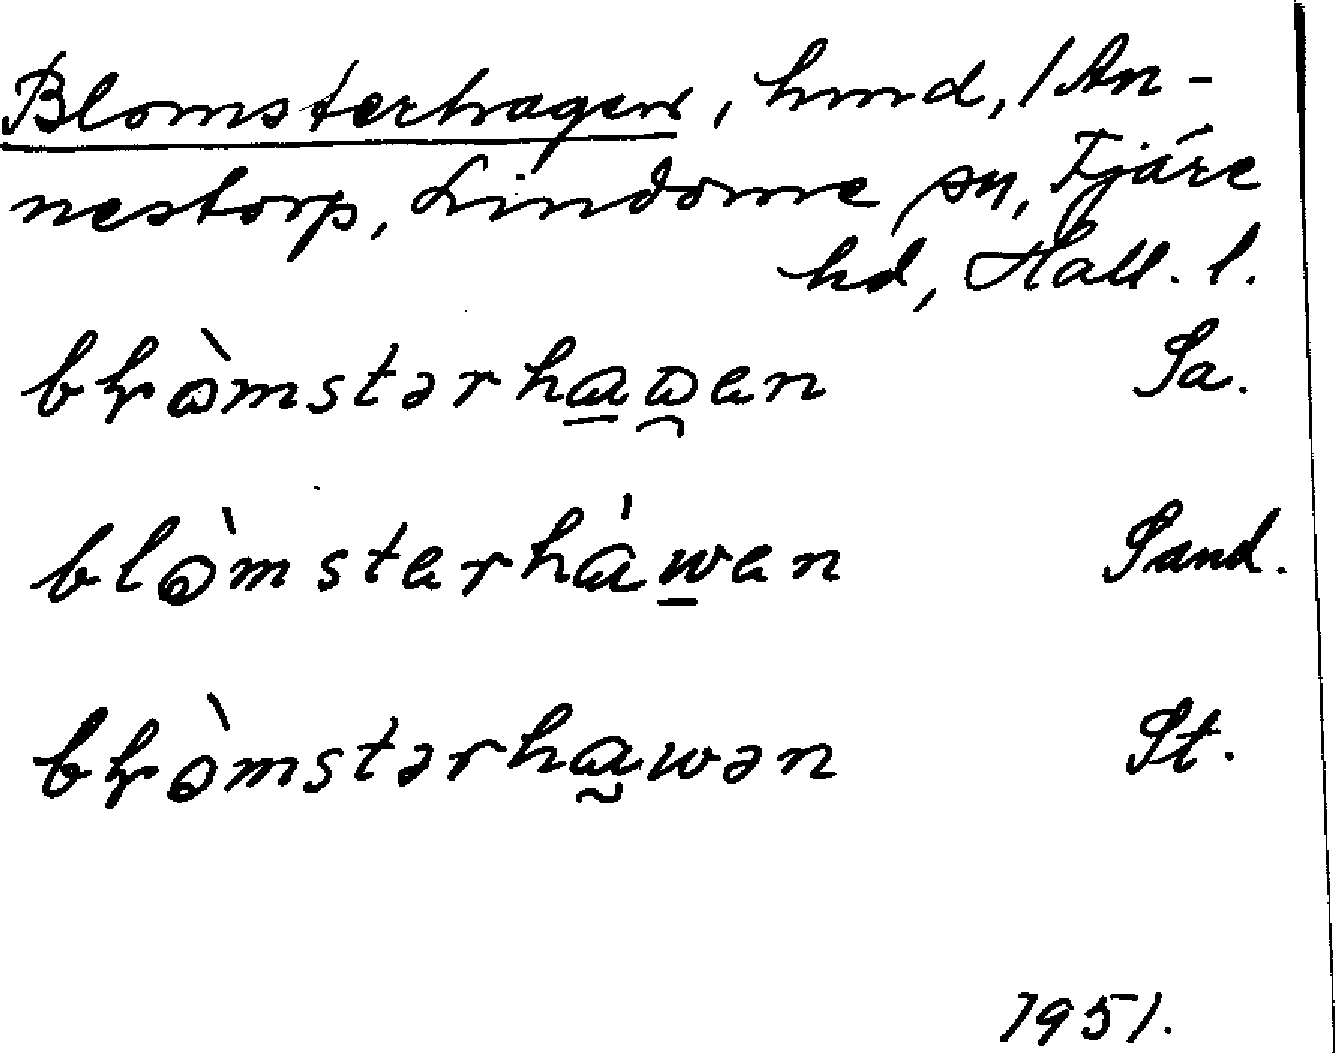 Blomsterhagen, hmd, 1 An-
nestorp, Lindome sn, Fjäre
hd, Hall. l.
bɽò̀mstərhaωen Sa.
blòmsterhàwen Sand.
bɽòmstərhawən St.
1951.